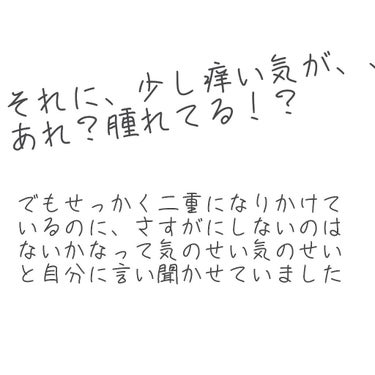 それに、少し痒い気が、、
あれ？腫れてる！？
でもせっかく二重になりかけて
いるのに、さすがにしないのは
ないかなって気のせい気のせい
と自分に言い聞かせていました